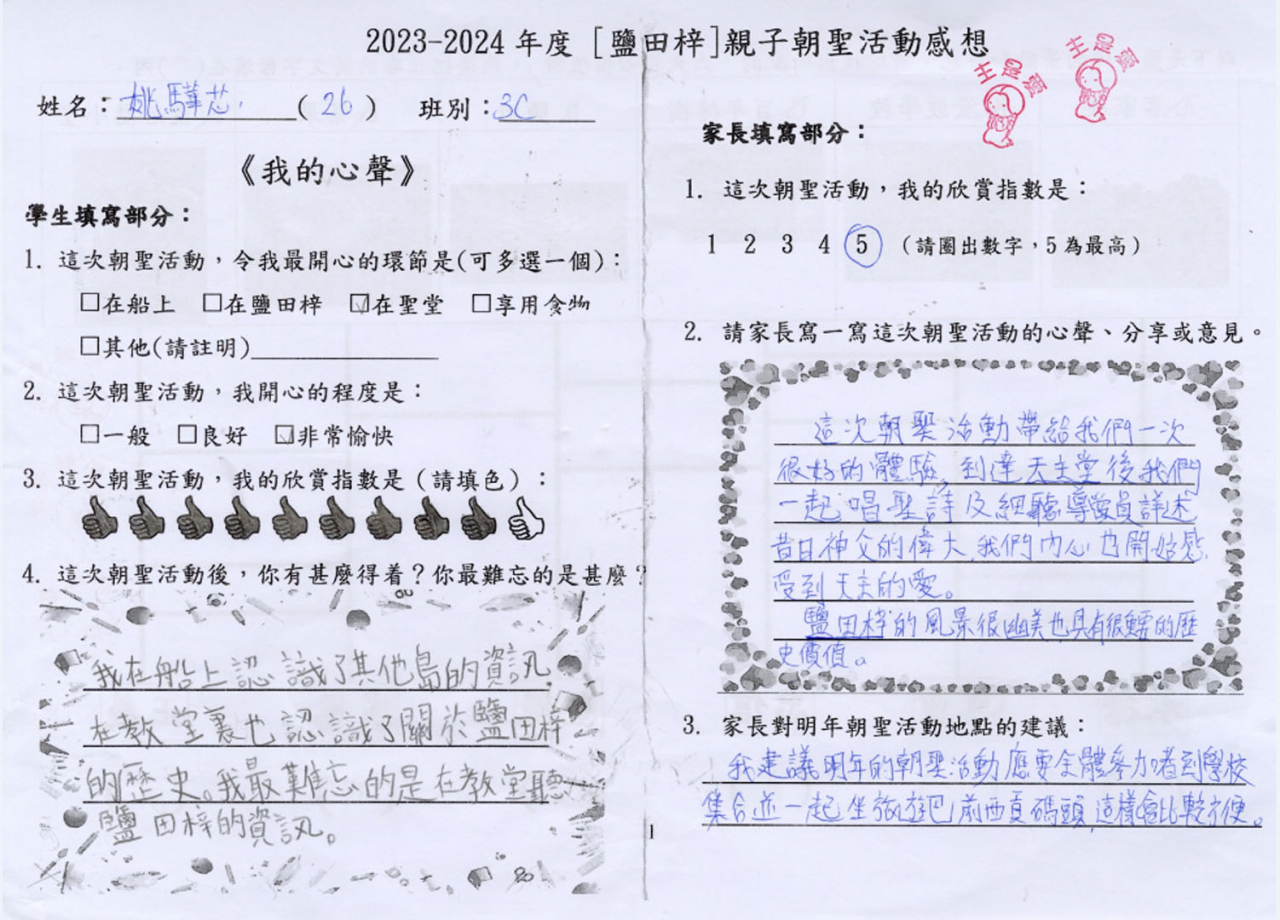 2023-2024 年度 [鹽田梓]親子朝聖活動感想
姓名：姚驊芯 (26) 班別：3C
《我的心聲》
學生填寫部分：
1. 這次朝聖活動，令我最開心的環節是(可多選一個)：
□在船上 □在鹽田梓 ☑在聖堂 □享用食物
□其他(請註明)
2. 這次朝聖活動，我開心的程度是：
□一般 □良好 ☑非常愉快
3. 這次朝聖活動，我的欣賞指數是（請填色）：
4. 這次朝聖活動後，你有甚麼得着？你最難忘的是甚麼？
我在船上認識了其他島的資訊。
在教堂裏也認識了關於鹽田梓
的歷史。我最難忘的是在教堂聽
鹽田梓的資訊。
主是愛
主是愛
家長填寫部分：
1. 這次朝聖活動，我的欣賞指數是：
1 2 3 4 5 （請圈出數字，5為最高）
2. 請家長寫一寫這次朝聖活動的心聲、分享或意見。
這次朝聖活動帶給我們一次
很好的體驗，到達天主堂後我們
一起唱聖詩及細聽導賞員詳述
昔日神父的偉大，我們內心也開始感
受到天主的愛。
鹽田梓的風景很幽美也具有很的歷
史價值。
3. 家長對明年朝聖活動地點的建議：
我建議明年的朝聖活動應要全體參加者到學校
集合並一起坐旅遊巴前西貢碼頭，這樣會比較方便。
1